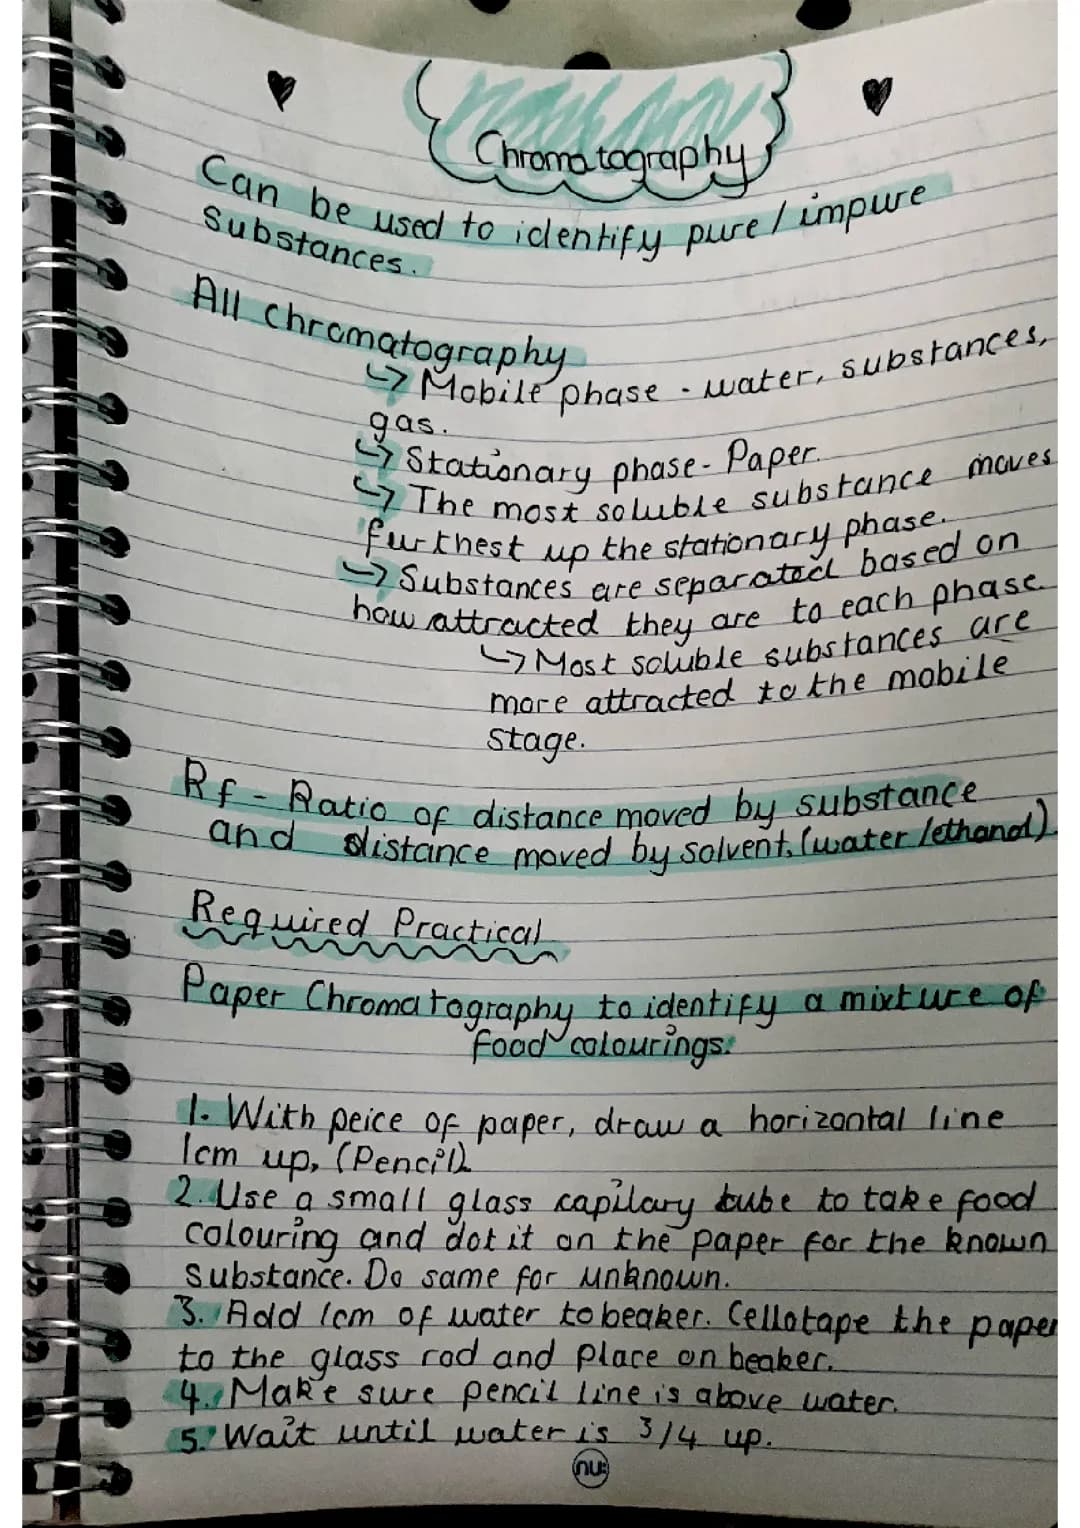 Chromatography
Can be used to identify pure / impure
Substances.
All chromatography
↳ Mobile phase - water, substances,
gas.
↳ Stationary phase - Paper.
↳ The most soluble substance moves
furthest up the stationary phase.
↳ Substances are separated based on
how attracted they are to each phase.
↳ Most soluble substances are
more attracted to the mobile
stage.
Rf - Ratio of distance moved by substance
and distance moved by solvent. (water/ethanol).
Required Practical
Paper Chromatography to identify a mixture of
food colourings.
1. With peice of paper, draw a horizontal line
1cm up, (Pencil).
2. Use a small glass capilary tube to take food
colouring and dot it on the paper for the known
substance. Do same for unknown.
3. Add 1cm of water to beaker. Cellotape the paper
to the glass rod and place on beaker.
4. Make sure pencil line is above water.
5. Wait until water is 3/4 up.
nu: